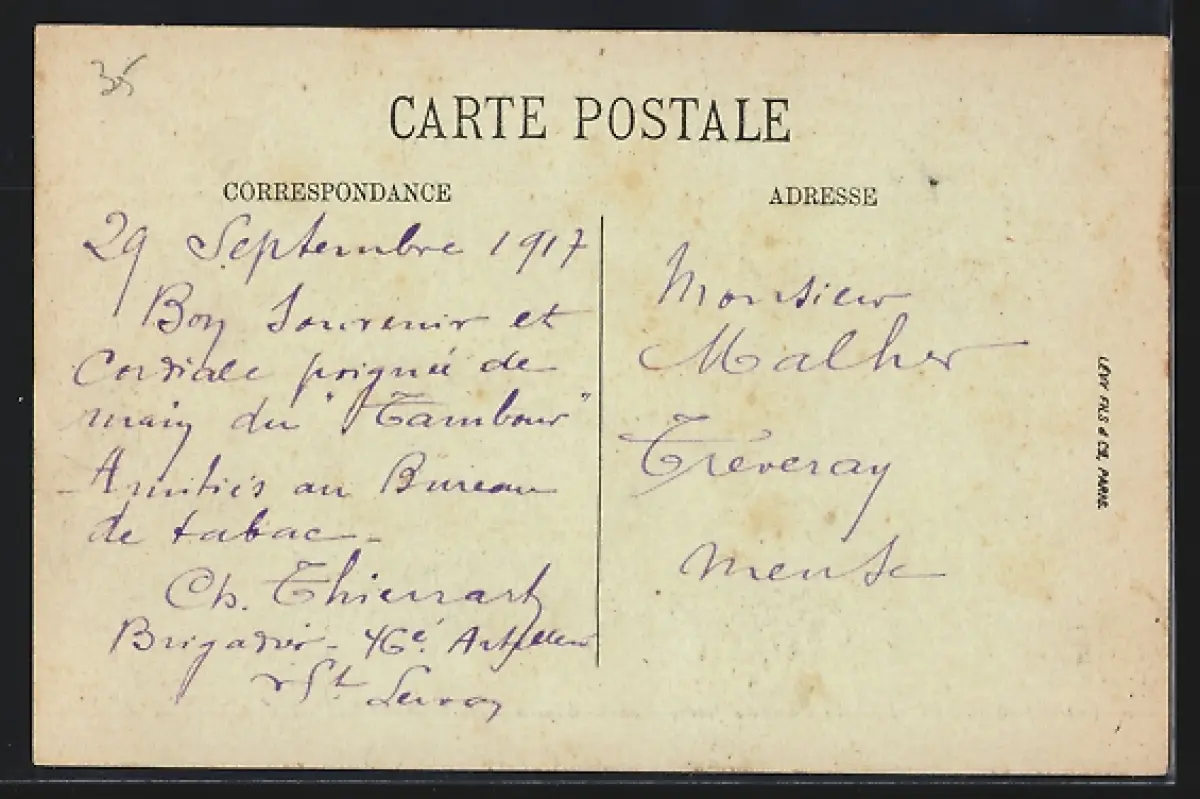 35
CARTE POSTALE
CORRESPONDANCE
29 Septembre 1917
Bon Souvenir et
Cordiale poignée de
main du "Tambour"
Amitiés au Bureau
de tabac -
Ch. Thienart
Brigadier - 46e Artilleur
ADRESSE
Monsieur
Malher
Tréveray
Meuse
LÉVY FILS & CIE, PARIS.